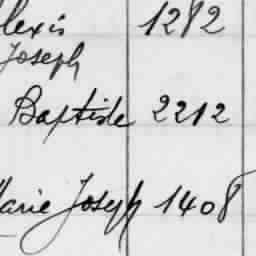 lexis 1282
Joseph
Baptiste 2212
Marie Joseph 1408